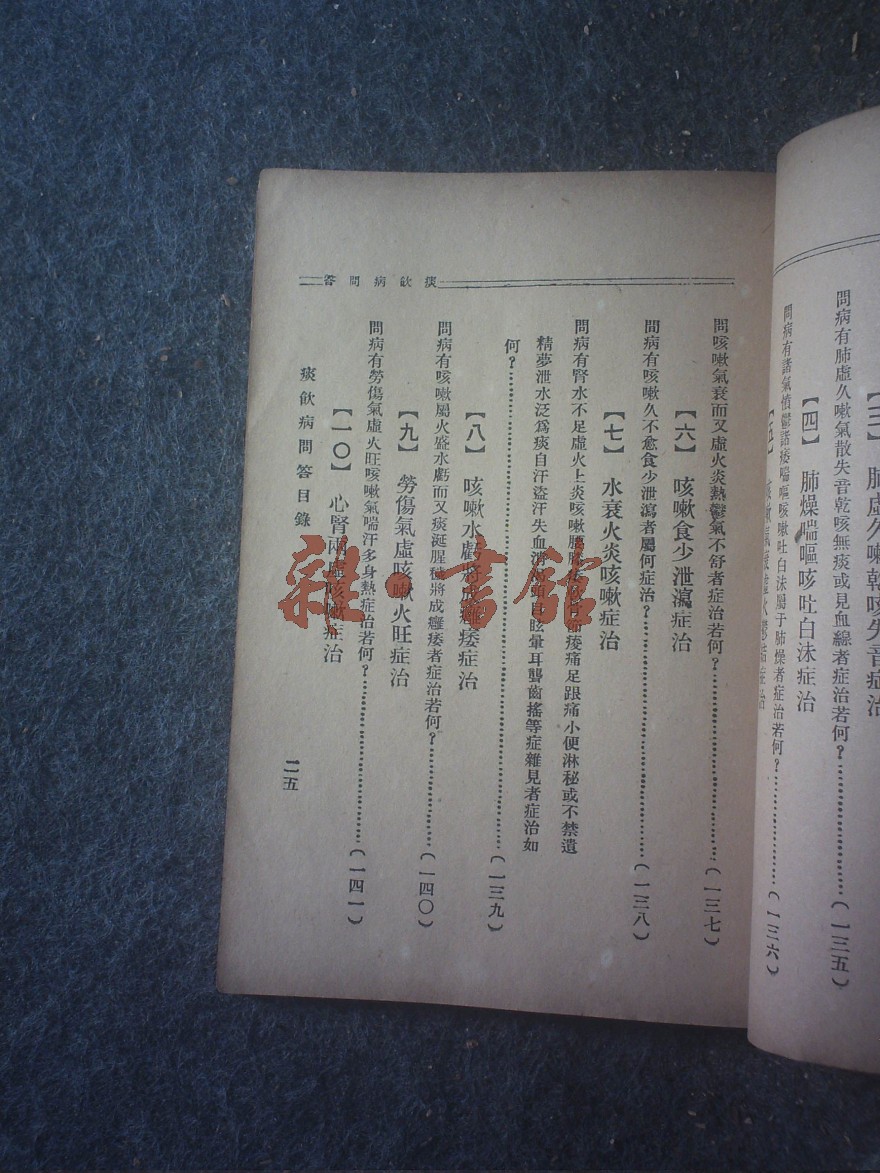 【三】 肺虛久嗽乾咳失音症治
問病有肺虛久嗽氣散失音乾咳無痰或見血線者症治若何？…………………（一三五）
【四】 肺燥喘嘔咳吐白沫症治
問病有諸氣憤鬱諸痿喘嘔咳嗽吐白沫屬于肺燥者症治若何？…………………（一三六）
【五】
痰飲病問答
問咳嗽氣衰而又虛火炎熱鬱氣不舒者症治若何？…………………（一三七）
【六】 咳嗽食少泄瀉症治
問病有咳嗽久不愈食少泄瀉者屬何症治？…………………（一三八）
【七】 水衰火炎咳嗽症治
問病有腎水不足虛火上炎咳嗽腰痠痛足跟痛小便淋秘或不禁遺
精夢泄水泛爲痰自汗盜汗失血消渴頭目眩暈耳聾齒搖等症雜見者症治如
何？…………………（一三九）
【八】 咳嗽水虧將成癰痿症治
問病有咳嗽屬火盛水虧而又痰涎腥穢將成癰痿者症治若何？…………………（一四〇）
【九】 勞傷氣虛咳嗽火旺症治
問病有勞傷氣虛火旺咳嗽氣喘汗多身熱症治若何？…………………（一四一）
【一〇】 心腎兩虛咳嗽症治
痰飲病問答目錄
二五
雜·書館